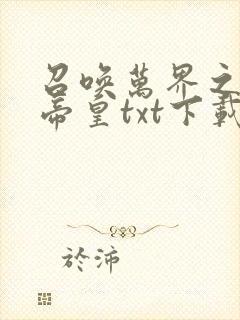 召喚萬界之
帝皇txt下載
於沛